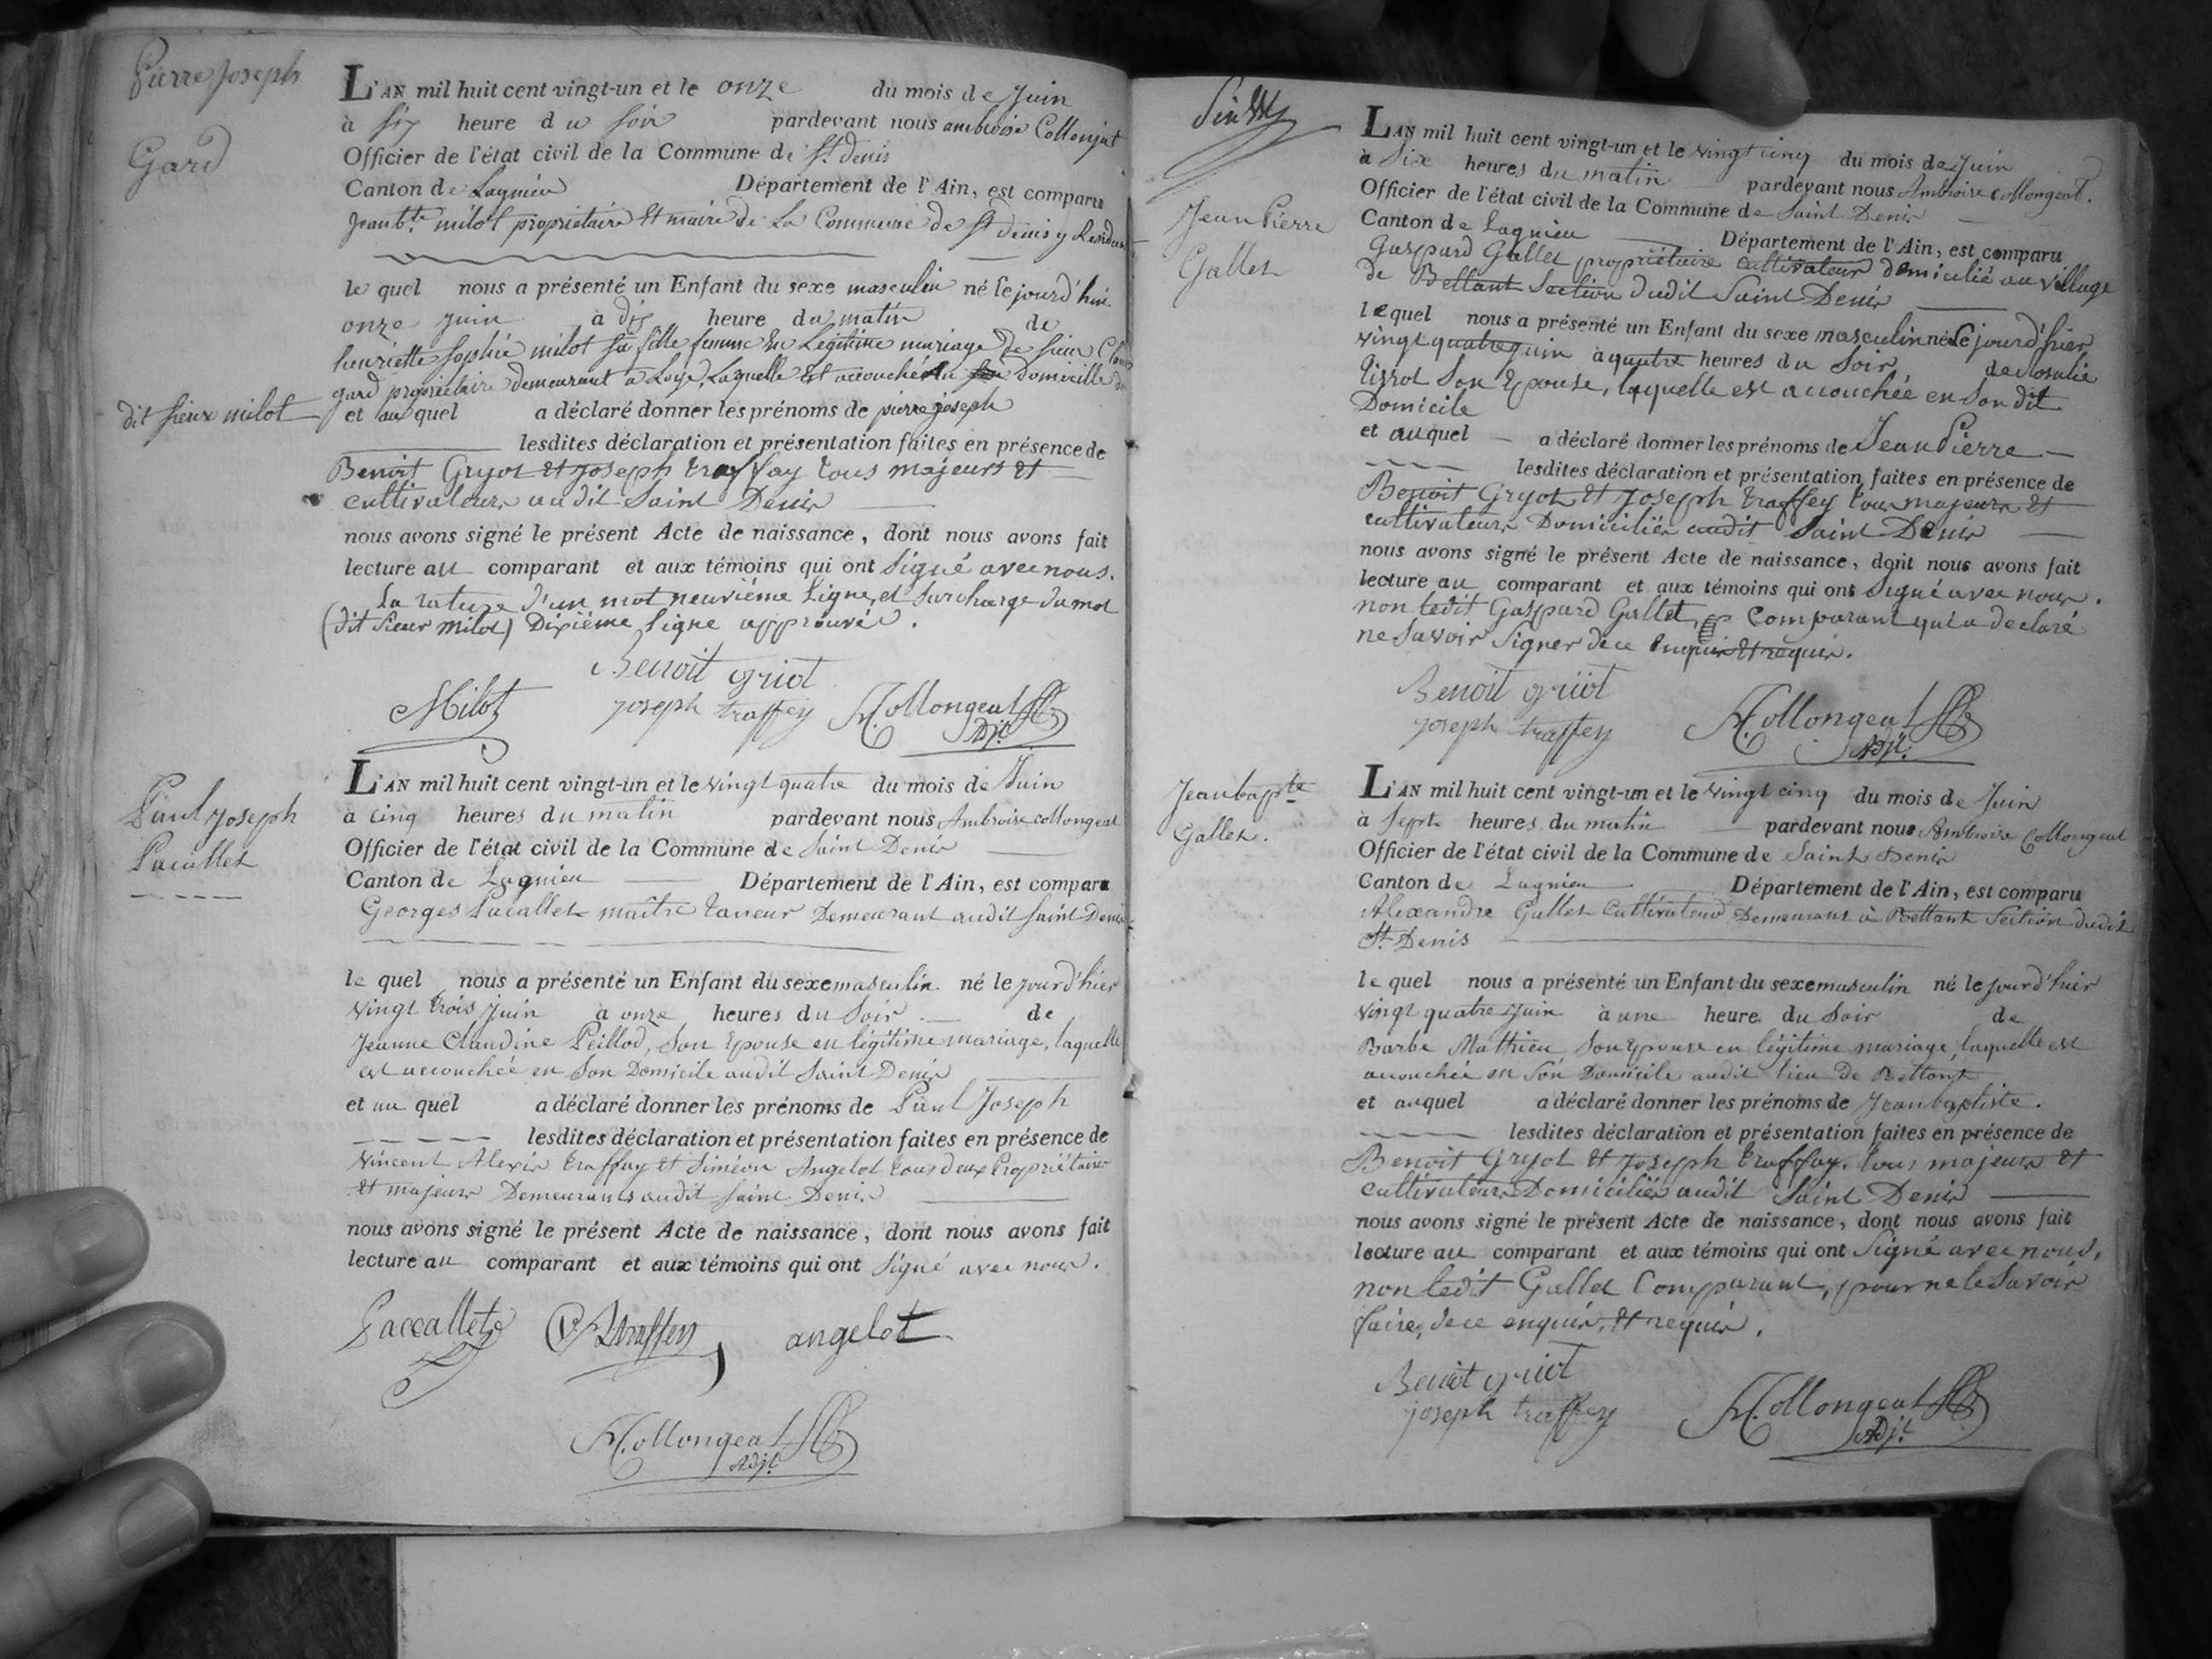 Pierre Joseph
Gard
L'AN mil huit cent vingt-un et le onze du mois de Juin
à six heure du soir pardevant nous ambroise Collonjat
Officier de l'état civil de la Commune de St denis
Canton de Lagnieu Département de l'Ain, est comparu
Jean bte milot propriétaire Et maire de La Commune de St denis y Residant
le quel nous a présenté un Enfant du sexe masculin né le jourd'hui
onze juin à dix heure du matin de
henriette Sophie milot sa fille femme En Légitime mariage de sieur
gard propriétaire demeurant à Loyes, Laquelle Est accouchée au Domicille du
dit sieur milot
et au quel a déclaré donner les prénoms de pierre joseph
lesdites déclaration et présentation faites en présence de
Benoit Gryot et Joseph traffay tous majeurs et
cultivateurs au dit Saint Denis
nous avons signé le présent Acte de naissance, dont nous avons fait
lecture au comparant et aux témoins qui ont signé avec nous.
La rature d'un mot neuvième Ligne, et surcharge du mot
(dit Sieur milot) Dixième Ligne approuvés.
Benoit griot
Milot joseph traffey A. Collongeat
Adjt
Paul Joseph
Pacallet
L'AN mil huit cent vingt-un et le vingt quatre du mois de Juin
à cinq heures du matin pardevant nous Ambroise Collongeat
Officier de l'état civil de la Commune de Saint Denis
Canton de Lagnieu Département de l'Ain, est comparu
Georges Pacallet maître taneur Demeurant audit Saint Denis
le quel nous a présenté un Enfant du sexe masculin né le jourd'hier
vingt trois juin à onze heures du Soir de
Jeanne Claudine Peillod, Son Epouse en légitime mariage, laquelle
est accouchée en Son Domicile audit Saint Denis
et au quel a déclaré donner les prénoms de Paul Joseph
lesdites déclaration et présentation faites en présence de
Vincent Alexis traffay et Siméon Angelot tous deux Propriétaires
et majeurs Demeurants audit Saint Denis
nous avons signé le présent Acte de naissance, dont nous avons fait
lecture au comparant et aux témoins qui ont Signé avec nous.
Paccallet traffey angelot
A. Collongeat
Adjt
Jean Pierre
Gallet
L'AN mil huit cent vingt-un et le vingt cinq du mois de Juin
à Six heures du matin pardevant nous Ambroise Collongeat.
Officier de l'état civil de la Commune de Saint Denis
Canton de Lagnieu Département de l'Ain, est comparu
Gaspard Gallet propriétaire cultivateur domicilié au village
de Bettant Section dudit Saint Denis
lequel nous a présenté un Enfant du sexe masculin né le jourd'hier
vingt quatre juin à quatre heures du Soir de Rosalie
Tissot Son Epouse, laquelle est accouchée en Son dit
Domicile
et auquel a déclaré donner les prénoms de Jean Pierre
lesdites déclaration et présentation faites en présence de
Benoit Gryot et Joseph traffey tous majeurs et
cultivateurs Domiciliés audit Saint Denis
nous avons signé le présent Acte de naissance, dont nous avons fait
lecture au comparant et aux témoins qui ont Signé avec nous.
non ledit Gaspard Gallet, Comparant qui a declaré
ne Savoir Signer de ce Enquis et requis.
Benoit griot
joseph traffey A. Collongeat
Adjt.
Jean bapte
Gallet.
L'AN mil huit cent vingt-un et le vingt cinq du mois de Juin
à Sept heures du matin pardevant nous Ambroise Collongeat
Officier de l'état civil de la Commune de Saint Denis
Canton de Lagnieu Département de l'Ain, est comparu
Alexandre Gallet Cultivateur Demeurant à Bettant Section dudit
St Denis
le quel nous a présenté un Enfant du sexe masculin né le jourd'hier
vingt quatre Juin à une heure du Soir de
Barbe Mathieu, Son Epouse en légitime mariage, laquelle est
accouchée en Son Domicile audit lieu de Bettant
et auquel a déclaré donner les prénoms de Jean baptiste.
lesdites déclaration et présentation faites en présence de
Benoit Gryot et Joseph traffay, tous majeurs et
cultivateurs Domiciliés audit Saint Denis
nous avons signé le présent Acte de naissance, dont nous avons fait
lecture au comparant et aux témoins qui ont Signé avec nous,
non ledit Gallet Comparant, pour ne le Savoir
faire, de ce enquis, et requis.
Benoit griot
joseph traffey A. Collongeat
Adjt